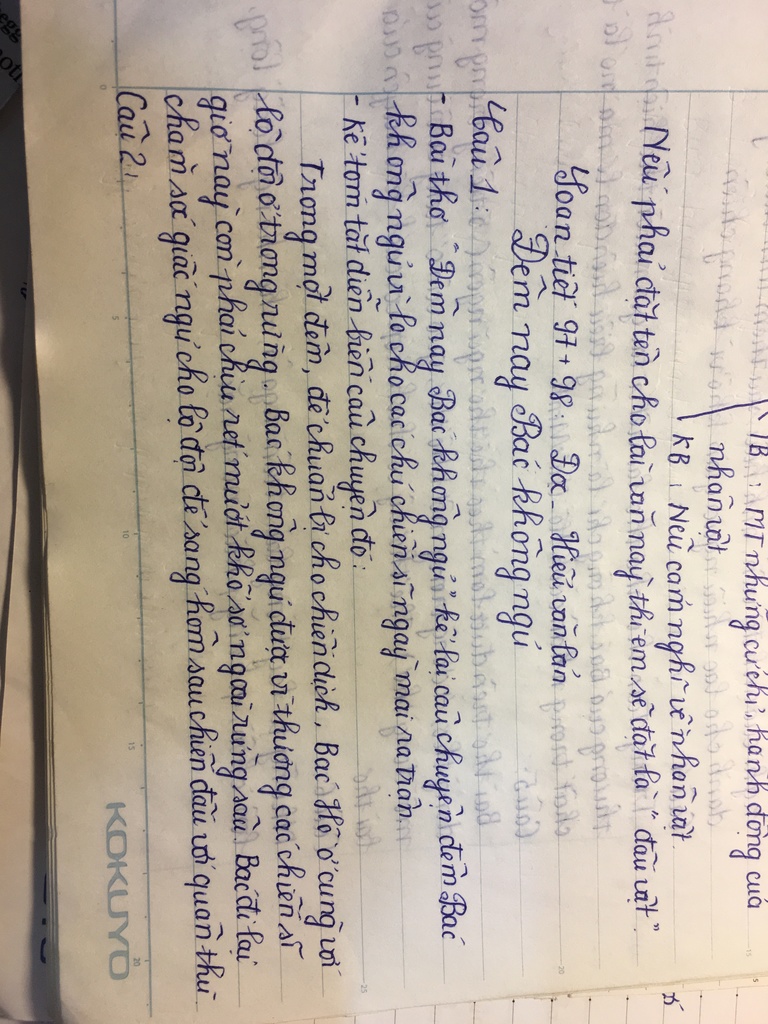 TB : MT những cử chỉ, hành động của
nhân vật
KB : Nêu cảm nghĩ về nhân vật
Nếu phải đặt tên cho bài văn này thì em sẽ đặt là " đấu vật "
Soạn tiết 97 + 98 : Đọc - Hiểu văn bản
Đêm nay Bác không ngủ
Câu 1 :
- Bài thơ " Đêm nay Bác không ngủ " kể lại câu chuyện đêm Bác
không ngủ vì lo cho các chú chiến sĩ ngày mai ra trận
- Kể tóm tắt diễn biến câu chuyện đó :
Trong một đêm, để chuẩn bị cho chiến dịch, Bác Hồ ở cùng với
bộ đội ở trong rừng. Bác không ngủ được vì thương các chiến sĩ
giờ này còn phải chịu rét mướt khổ sở ngoài rừng sâu. Bác đi lại
chăm sóc giấc ngủ cho bộ đội để sáng hôm sau chiến đấu với quân thù
Câu 2 :
KOKUYO